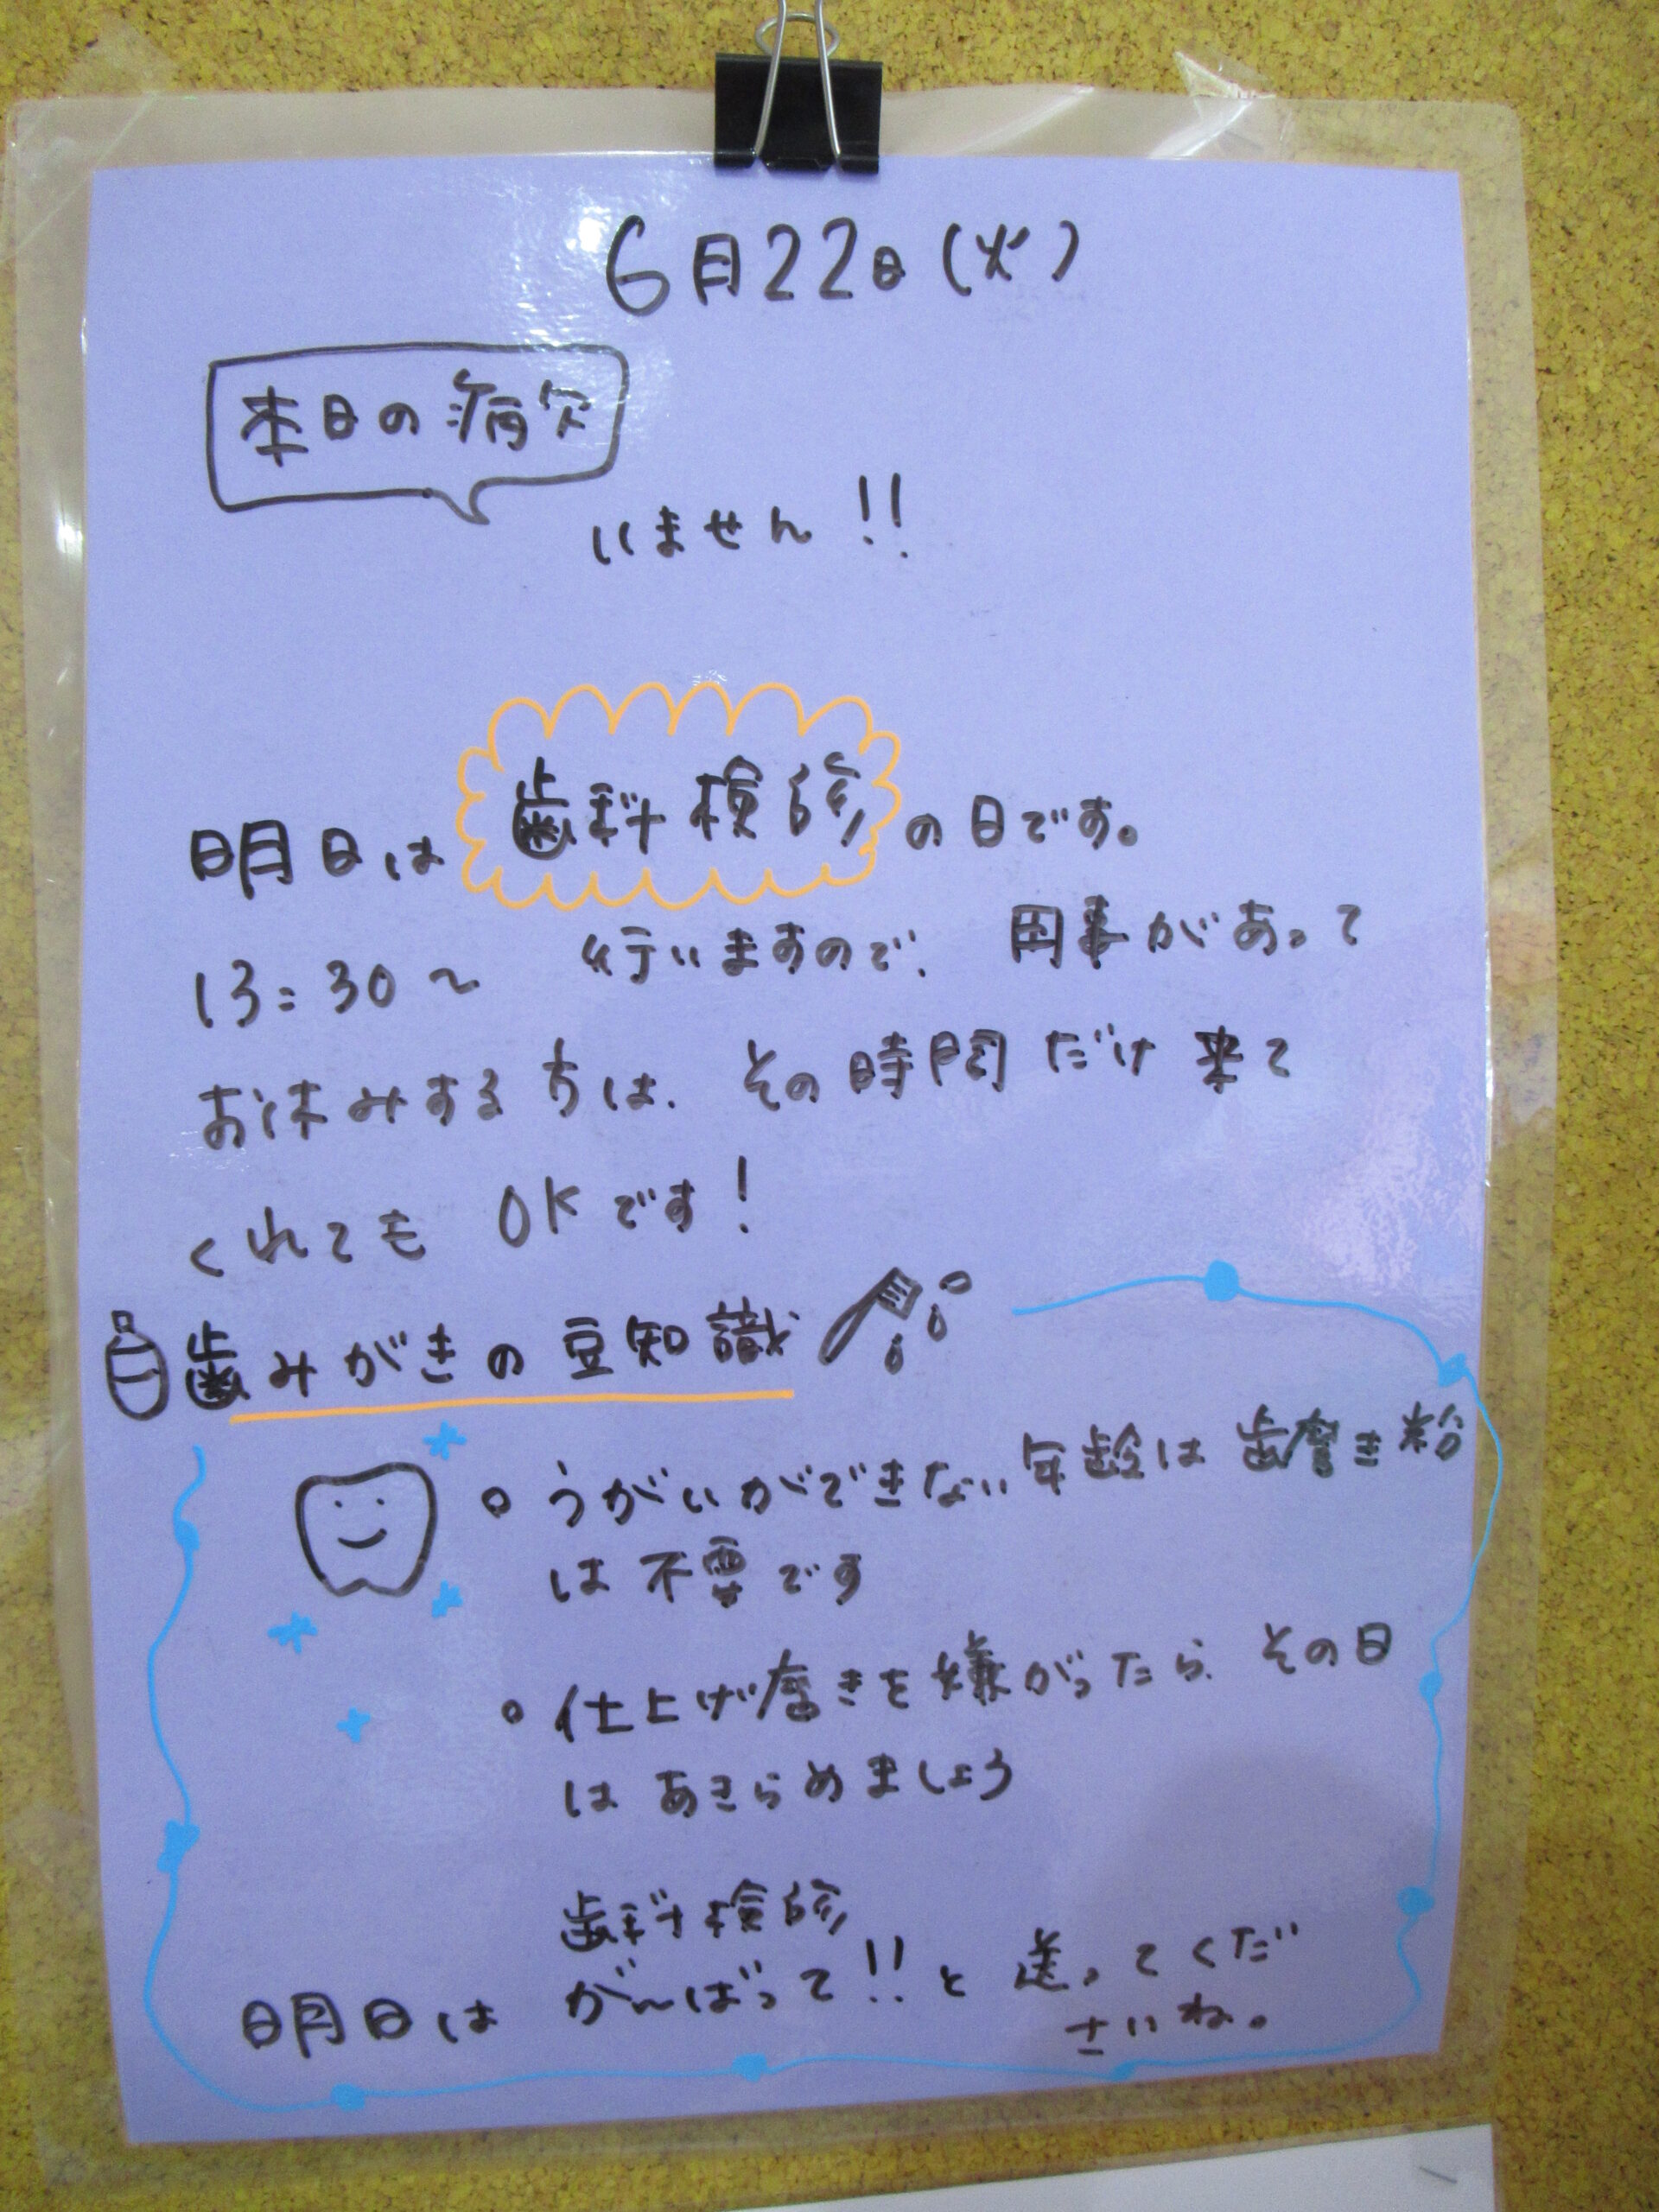 6月22日(火)
本日の病欠
いません!!
明日は 歯科検診 の日です。
13:30～ 行いますので、用事があって
お休みする方は、その時間だけ来て
くれても OKです!
歯みがきの豆知識
○ うがいができない年齢は歯磨き粉
は不要です
○ 仕上げ磨きを嫌がったら、その日
はあきらめましょう
歯科検診
明日は がんばって!!と送ってくだ
さいね。